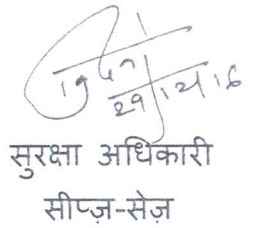 29/12/16
सुरक्षा अधिकारी
सीप्ज़-सेज़